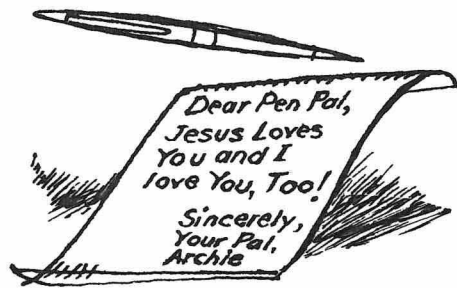 Dear Pen Pal,
Jesus Loves
You and I
love You, Too!
Sincerely,
Your Pal,
Archie